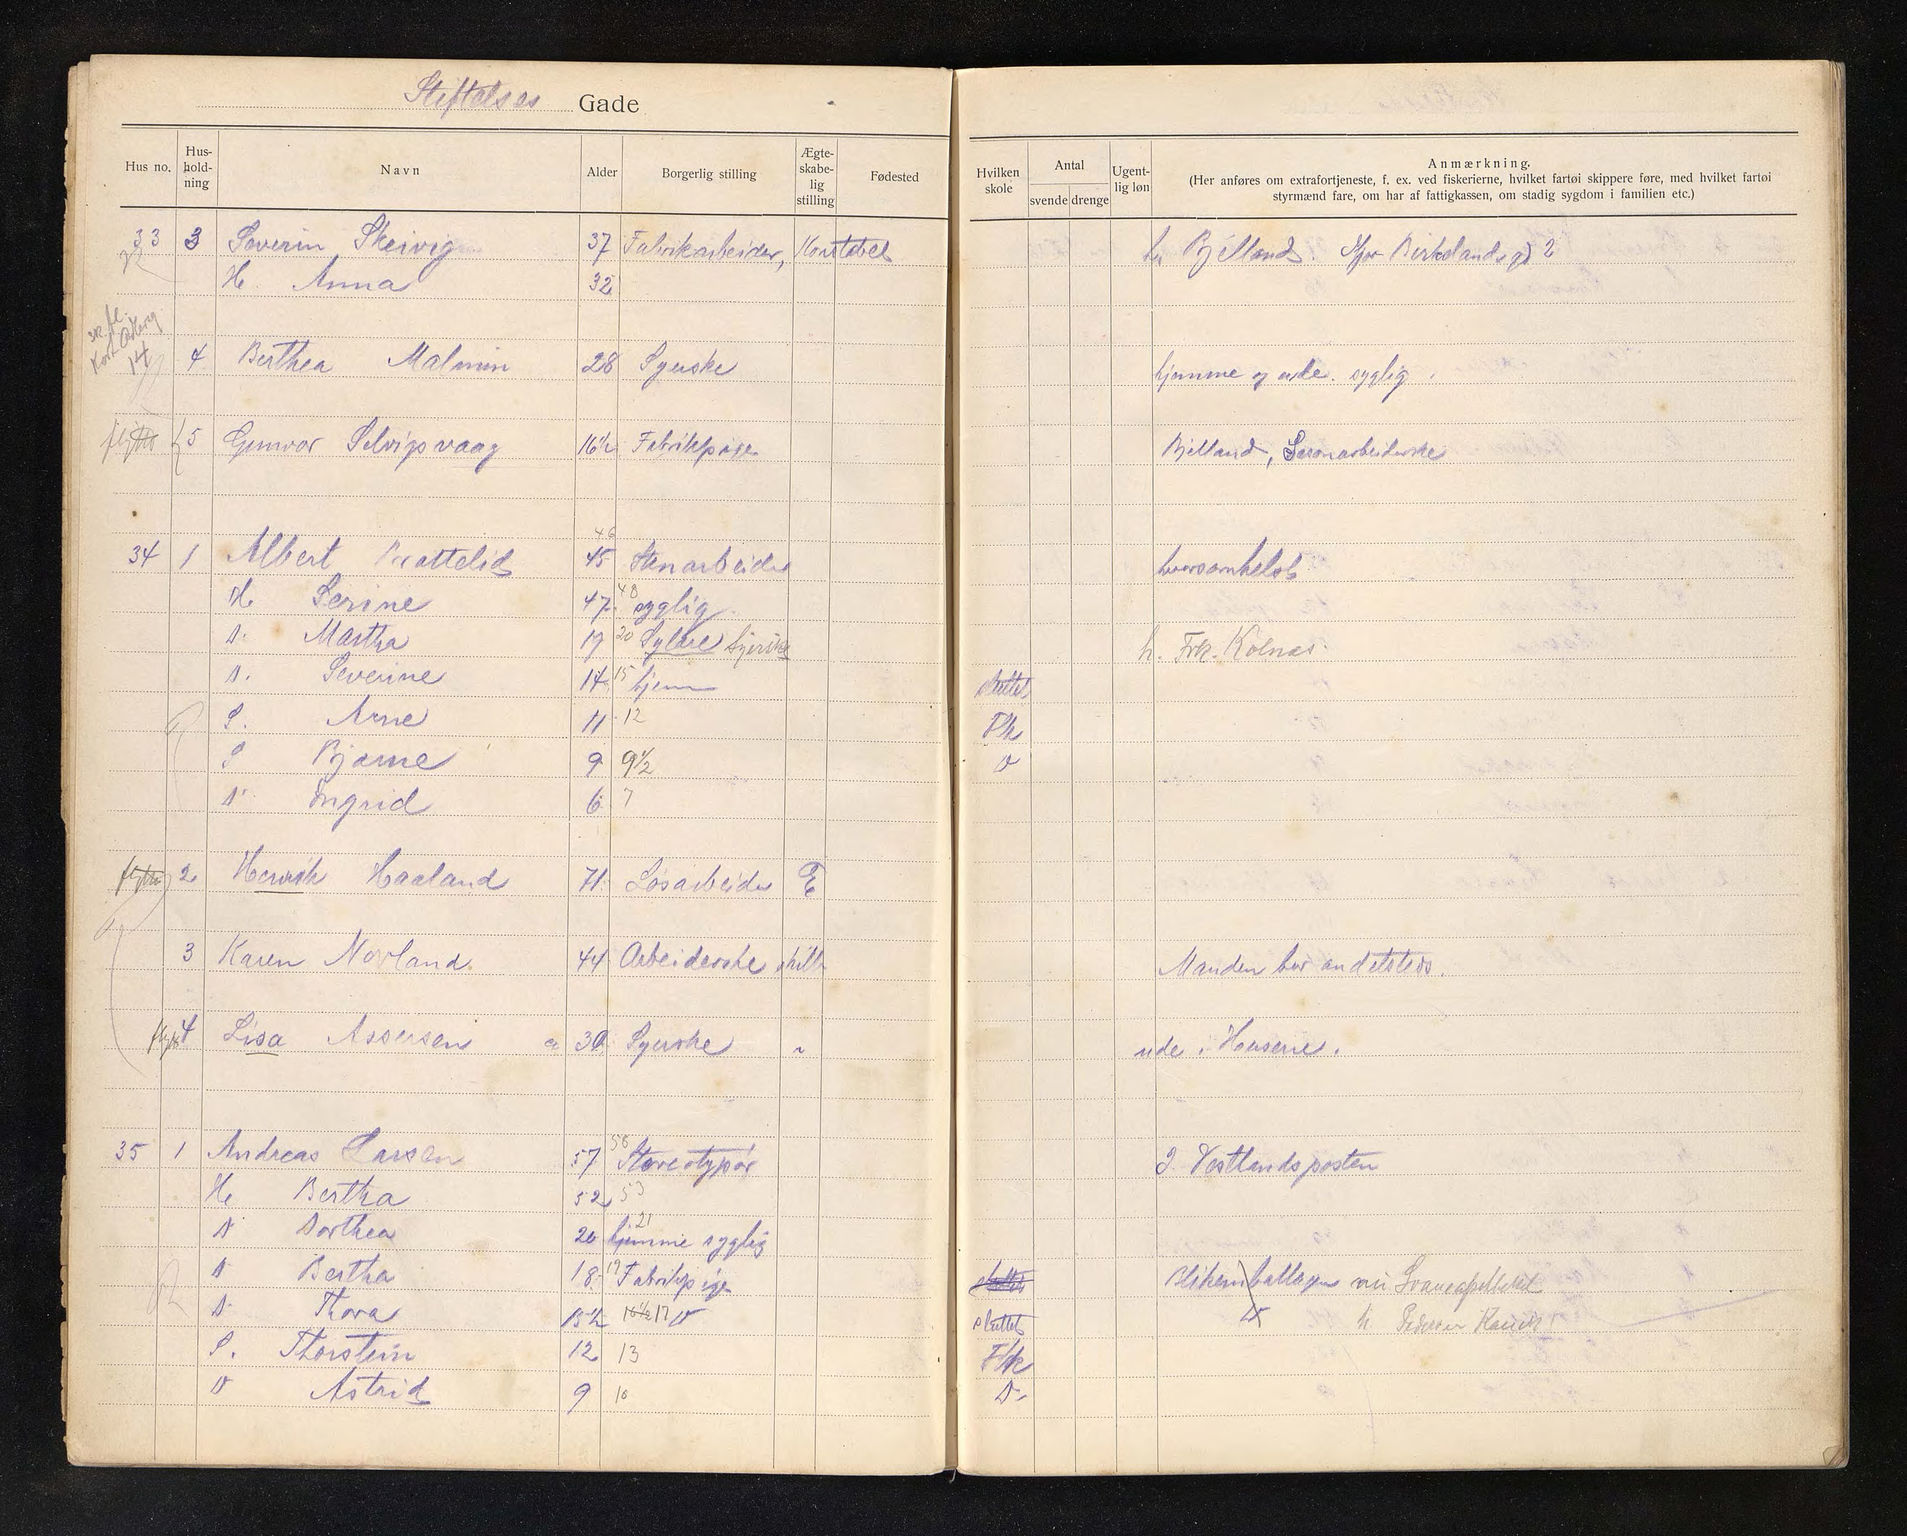 Stiftelses Gade
Hus no. Hus-hold-ning Navn Alder Borgerlig stilling Ægte-skabe-lig stilling Fødested
Hvilken skole Antal svende drenge Ugent-lig løn Anmærkning.
(Her anføres om extrafortjeneste, f. ex. ved fiskerierne, hvilket fartøi skippere føre, med hvilket fartøi
styrmænd fare, om har af fattigkassen, om stadig sygdom i familien etc.)
33 3 Severin Skeivig 37 Fabrikarbeider, Konstabel hr Bjelland. Mjor Birkelandsgd 2
H. Anna 32
14
4 Berthea Malmin 28 Syerske hjemme og ude. syglig.
flyttet 5 Gunvor Selvigsvaag 16½ Fabrikpige Bjelland,
46
34 1 Albert Brattelid 45 Stenarbeider hvorsomhelst
H. Serine 47 48 syglig
D. Martha 19 20 Sylære Syerske h. Frk. Kolnes
D. Severine 14 15 hjem sluttet
S. Arne 11 12 Flk
S Bjarne 9 9½ D
D Ingrid 6 7
flyttet 2 Henrik Haaland 71 Løsarbeider E
3 Karen Norland 44 Arbeiderske skilt Manden bor andetsteds.
flyttet 4 Lisa Assersen 30 Syerske ude i Husene.
58
35 1 Andreas Larsen 57 Stereotypør I Vestlandsposten
H. Bertha 52 53
D Dorthea 20 21 hjemme syglig
D Bertha 18 19 Fabrikpige sluttet Blikemballagen nu Svaneapotheket
D Thora 15½ 16½ 17 D sluttet D h Pedersen
S. Thorstein 12 13 Flk
D Astrid 9 10 D.